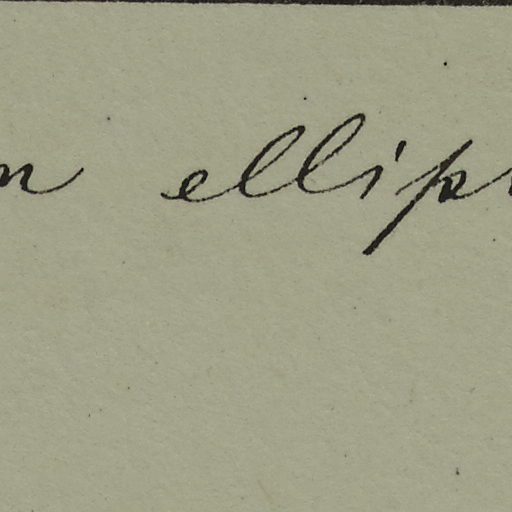 n ellip